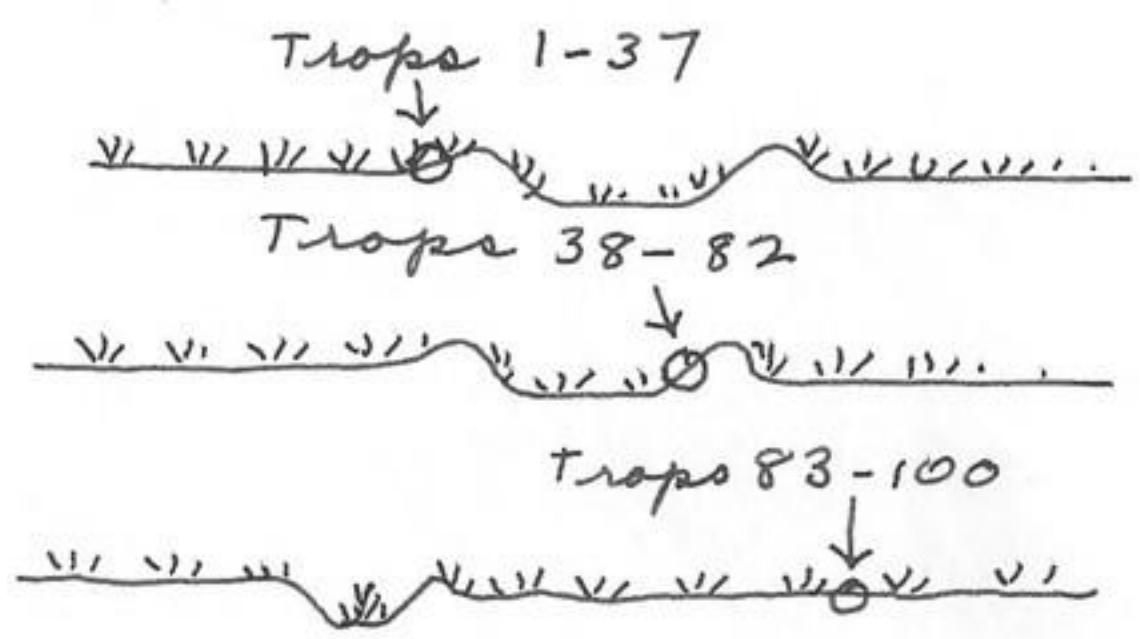 Traps 1-37
Traps 38-82
Traps 83-100